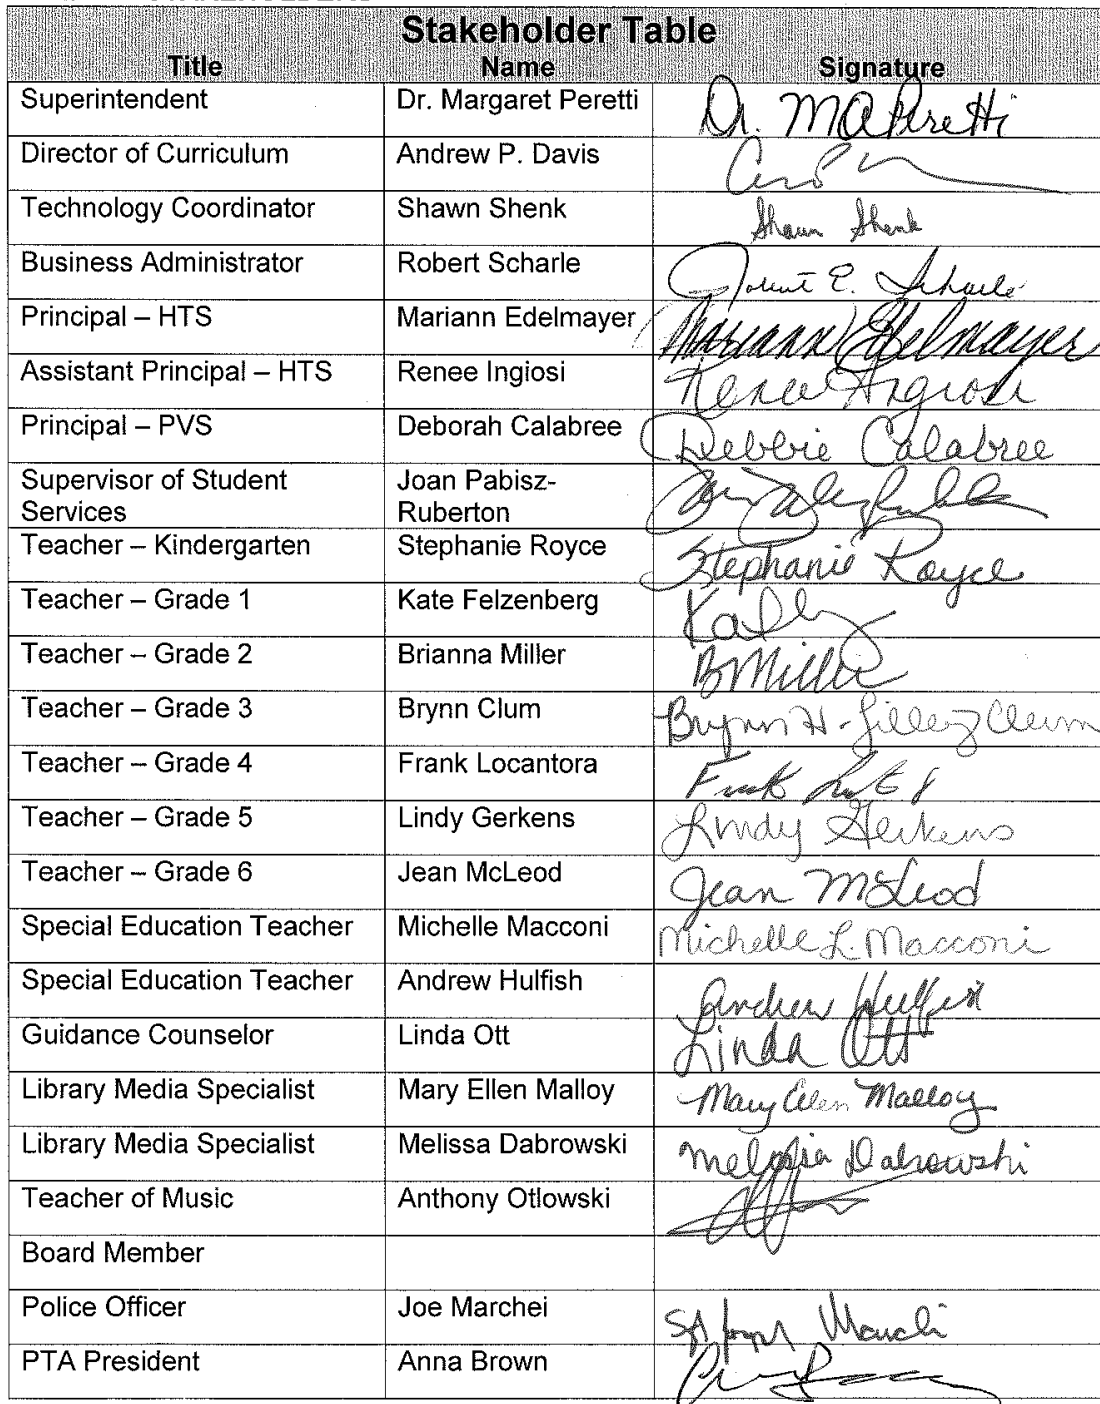 Stakeholder Table
Title Name Signature
Superintendent Dr. Margaret Peretti Dr. MA Peretti
Director of Curriculum Andrew P. Davis
Technology Coordinator Shawn Shenk Shawn Shenk
Business Administrator Robert Scharle Robert E. Scharle
Principal – HTS Mariann Edelmayer Mariann Edelmayer
Assistant Principal – HTS Renee Ingiosi Renee Ingiosi
Principal – PVS Deborah Calabree Debbie Calabree
Supervisor of Student Joan Pabisz-
Services Ruberton
Teacher – Kindergarten Stephanie Royce Stephanie Royce
Teacher – Grade 1 Kate Felzenberg
Teacher – Grade 2 Brianna Miller B Miller
Teacher – Grade 3 Brynn Clum Brynn H. Clum
Teacher – Grade 4 Frank Locantora Frank
Teacher – Grade 5 Lindy Gerkens Lindy Gerkens
Teacher – Grade 6 Jean McLeod Jean McLeod
Special Education Teacher Michelle Macconi Michelle L. Macconi
Special Education Teacher Andrew Hulfish Andrew Hulfish
Guidance Counselor Linda Ott Linda Ott
Library Media Specialist Mary Ellen Malloy Mary Ellen Malloy
Library Media Specialist Melissa Dabrowski Melissa Dabrowski
Teacher of Music Anthony Otlowski
Board Member
Police Officer Joe Marchei
PTA President Anna Brown